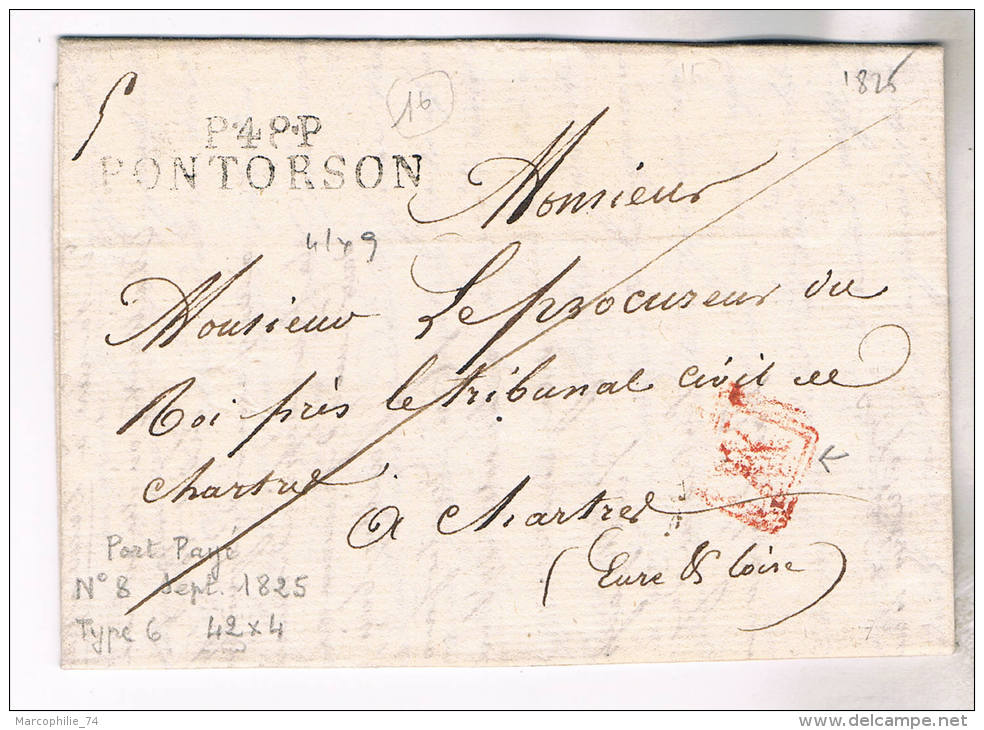 16
1825
P.48.P
PONTORSON
Monsieur
41 x 9
Monsieur Le procureur du
Roi près le tribunal civil de
chartres
à chartres
(Eure & Loire)
Port Payé
N° 8 Sept. 1825
Type 6 42 x 4
Marcophilie_74
© delcampe.net